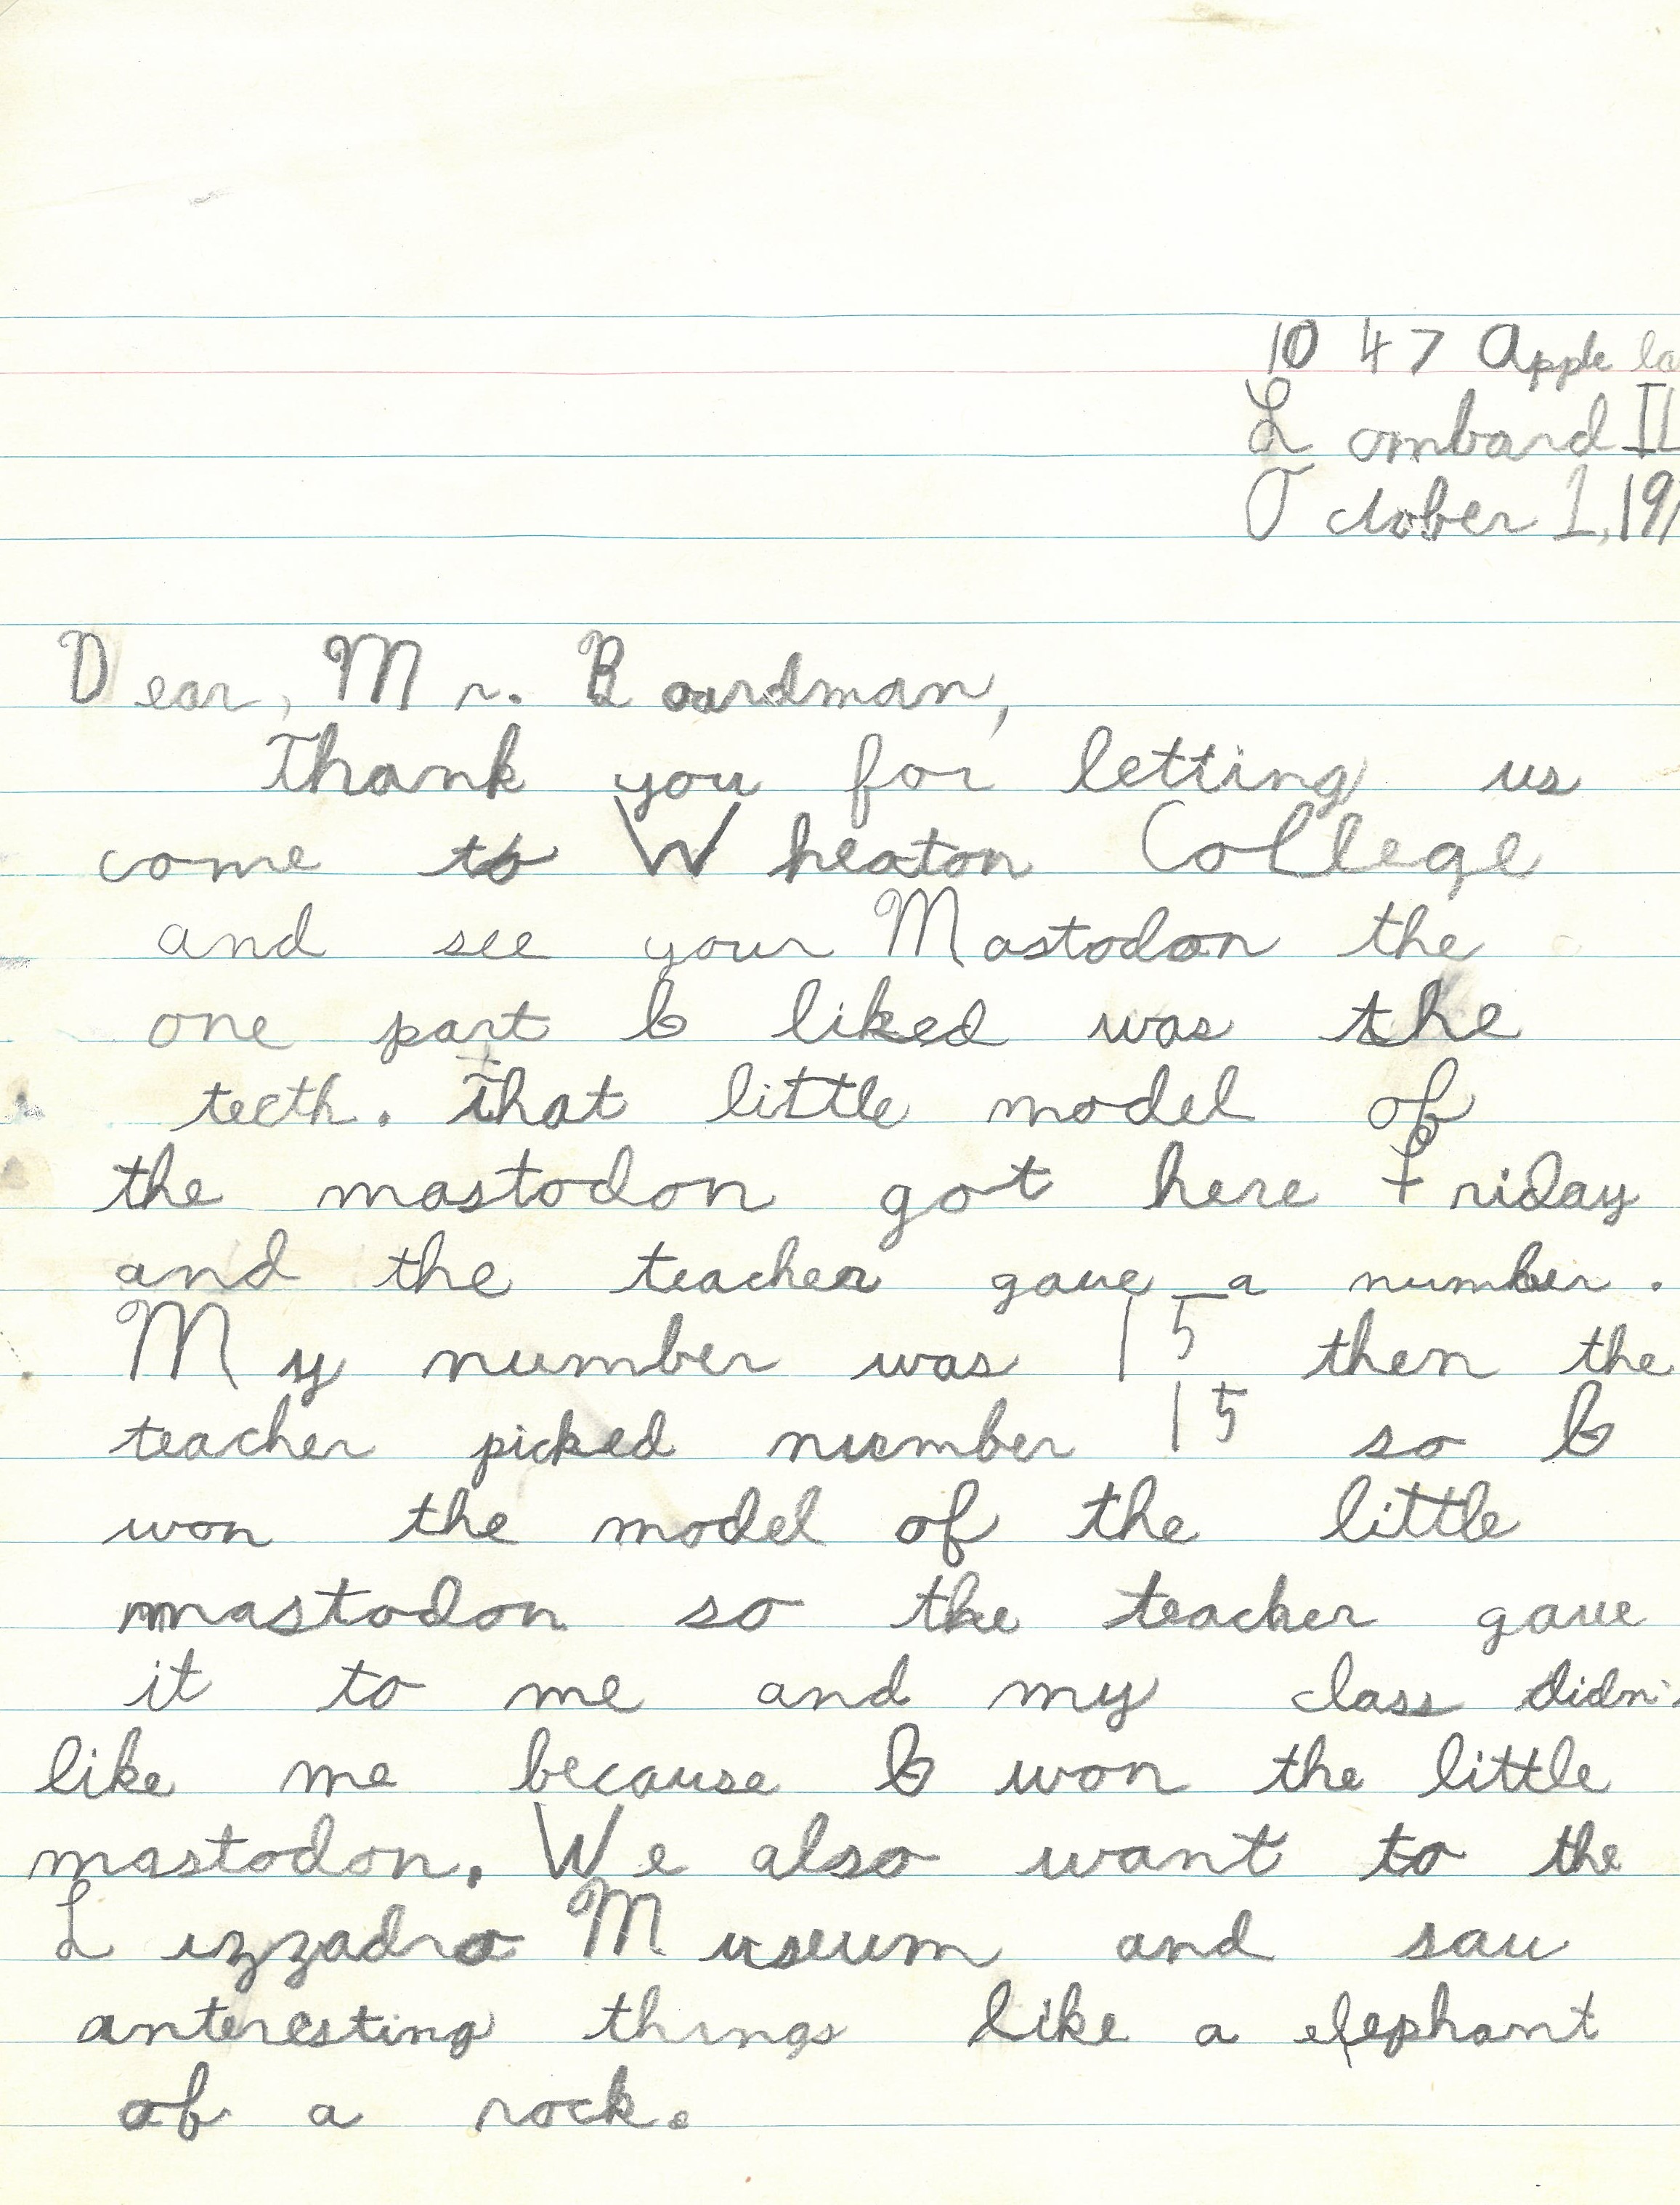 1047 Apple la
Lombard IL
October 1, 197
Dear, Mr. Boardman,
Thank you for letting us
come to Wheaton College
and see your Mastodon the
one part I liked was the
teeth. That little model of
the mastodon got here Friday
and the teacher gave a number.
My number was 15 then the
teacher picked number 15 so I
won the model of the little
mastodon so the teacher gave
it to me and my class didn'
like me because I won the little
mastodon. We also want to the
Lizzadro Museum and sau
anteresting things like a elephant
of a rock.